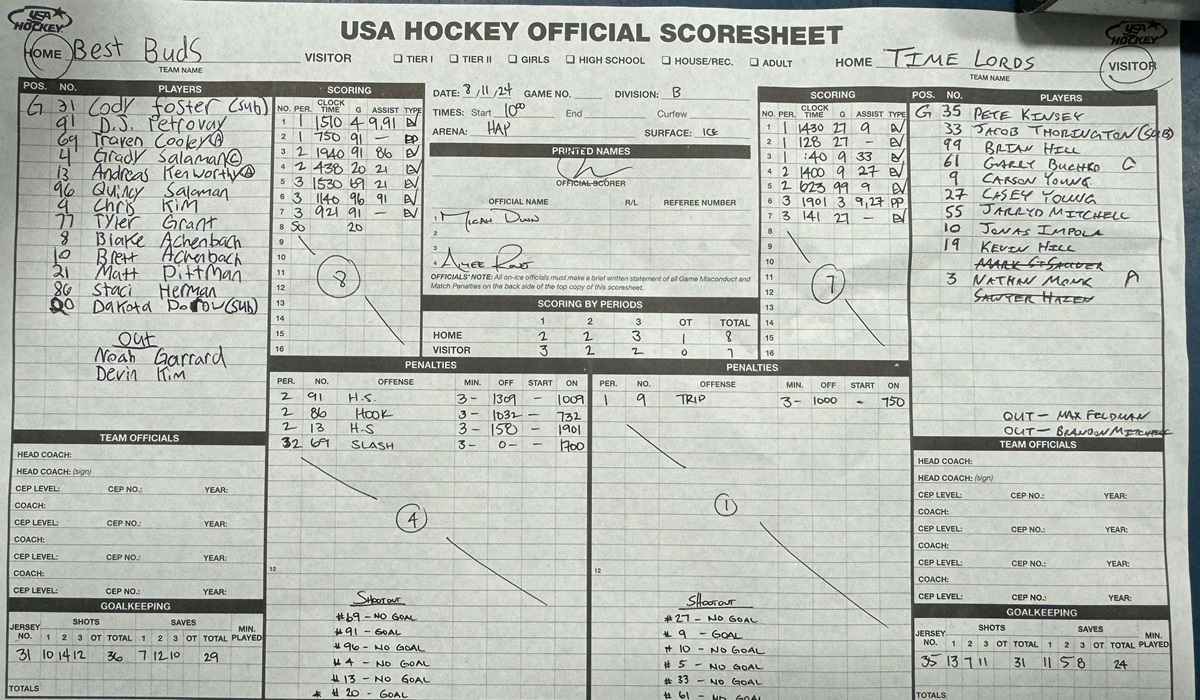 USA HOCKEY
USA HOCKEY OFFICIAL SCORESHEET
USA HOCKEY
HOME Best Buds VISITOR
TEAM NAME
☐ TIER I ☐ TIER II ☐ GIRLS ☐ HIGH SCHOOL ☐ HOUSE/REC. ☐ ADULT
HOME TIME LORDS VISITOR
TEAM NAME
POS. NO. PLAYERS
G 31 Cody Foster (sub)
91 D.J. Petrovay
69 Traven Cooley A
4 Grady Salaman C
13 Andreas Kenworthy A
96 Quincy Salaman
9 Chris Kim
77 Tyler Grant
8 Blake Achenbach
10 Brett Achenbach
21 Matt Pittman
86 Staci Herman
20 Dakota Dorow (sub)
Out
Noah Garrard
Devin Kim
SCORING
NO. PER. CLOCK TIME G ASSIST TYPE
1 1 1510 4 9,91 EV
2 1 750 91 — PP
3 2 1940 91 86 EV
4 2 438 20 21 EV
5 3 1530 69 21 EV
6 3 1140 96 91 EV
7 3 921 91 — EV
8 SO 20
9
10
11
12
13
14
15
16
8
DATE: 8/11/24 GAME NO. DIVISION: B
TIMES: Start 10:00 End Curfew
ARENA: HAP SURFACE: ICE
PRINTED NAMES
OFFICIAL SCORER
OFFICIAL NAME R/L REFEREE NUMBER
1 Micah Dunn
2
3
4
OFFICIALS' NOTE: All on-ice officials must make a brief written statement of all Game Misconduct and
Match Penalties on the back side of the top copy of this scoresheet.
SCORING BY PERIODS
1 2 3 OT TOTAL
HOME 2 2 3 1 8
VISITOR 3 2 2 0 7
SCORING
NO. PER. CLOCK TIME G ASSIST TYPE
1 1 1430 27 9 EV
2 1 128 27 — EV
3 1 :40 9 33 EV
4 2 1400 9 27 EV
5 2 623 99 9 EV
6 3 1901 3 9,27 PP
7 3 141 27 — EV
8
9
10
11
12
13
14
15
16
7
POS. NO. PLAYERS
G 35 PETE KINSEY
33 JACOB THORINGTON (SUB)
99 BRIAN HILL
61 GARRY BUCHKO C
9 CARSON YOUNG
27 CASEY YOUNG
55 JARRYD MITCHELL
10 JONAS IMPOLA
19 KEVIN HILL
3 NATHAN MONK A
SAWYER HAZEN
OUT — MAX FELDMAN
OUT — BRANDON MITCHELL
PENALTIES
PER. NO. OFFENSE MIN. OFF START ON
2 91 H.S. 3- 1309 — 1009
2 86 HOOK 3- 1032 — 732
2 13 H.S 3- 158 — 1901
2 69 SLASH 3- 0- — 1700
4
12
Shootout
#69 - NO GOAL
#91 - GOAL
#96 - NO GOAL
#4 - NO GOAL
#13 - NO GOAL
* #20 - GOAL
PENALTIES
PER. NO. OFFENSE MIN. OFF START ON
1 9 TRIP 3- 1000 - 750
1
12
Shootout
#27 - NO GOAL
#9 - GOAL
#10 - NO GOAL
#5 - NO GOAL
#33 - NO GOAL
#61 - NO GOAL
TEAM OFFICIALS
HEAD COACH:
HEAD COACH: (sign)
CEP LEVEL: CEP NO.: YEAR:
COACH:
CEP LEVEL: CEP NO.: YEAR:
COACH:
CEP LEVEL: CEP NO.: YEAR:
COACH:
CEP LEVEL: CEP NO.: YEAR:
GOALKEEPING
JERSEY NO. SHOTS SAVES MIN. PLAYED
1 2 3 OT TOTAL 1 2 3 OT TOTAL
31 10 14 12 36 7 12 10 29
TOTALS
TEAM OFFICIALS
HEAD COACH:
HEAD COACH: (sign)
CEP LEVEL: CEP NO.: YEAR:
COACH:
CEP LEVEL: CEP NO.: YEAR:
COACH:
CEP LEVEL: CEP NO.: YEAR:
COACH:
CEP LEVEL: CEP NO.: YEAR:
GOALKEEPING
JERSEY NO. SHOTS SAVES MIN. PLAYED
1 2 3 OT TOTAL 1 2 3 OT TOTAL
35 13 7 11 31 11 5 8 24
TOTALS